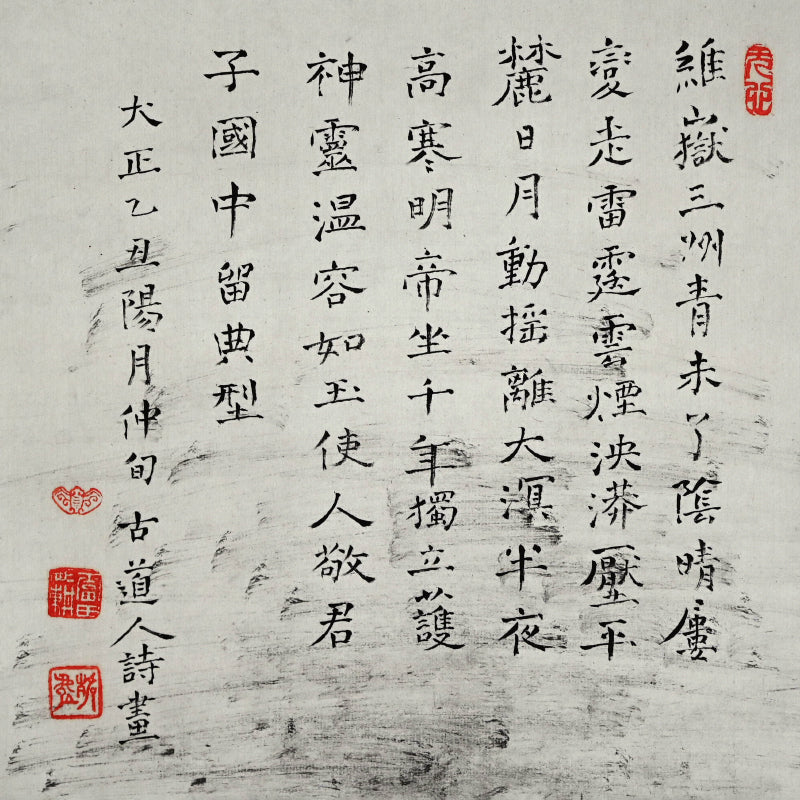 維嶽三州青未了陰晴屢
變走雷霆雲煙泱漭壓平
麓日月動搖離大溟半夜
高寒明帝坐千年獨立護
神靈溫容如玉使人敬君
子國中留典型
大正乙丑陽月仲旬古道人詩畫